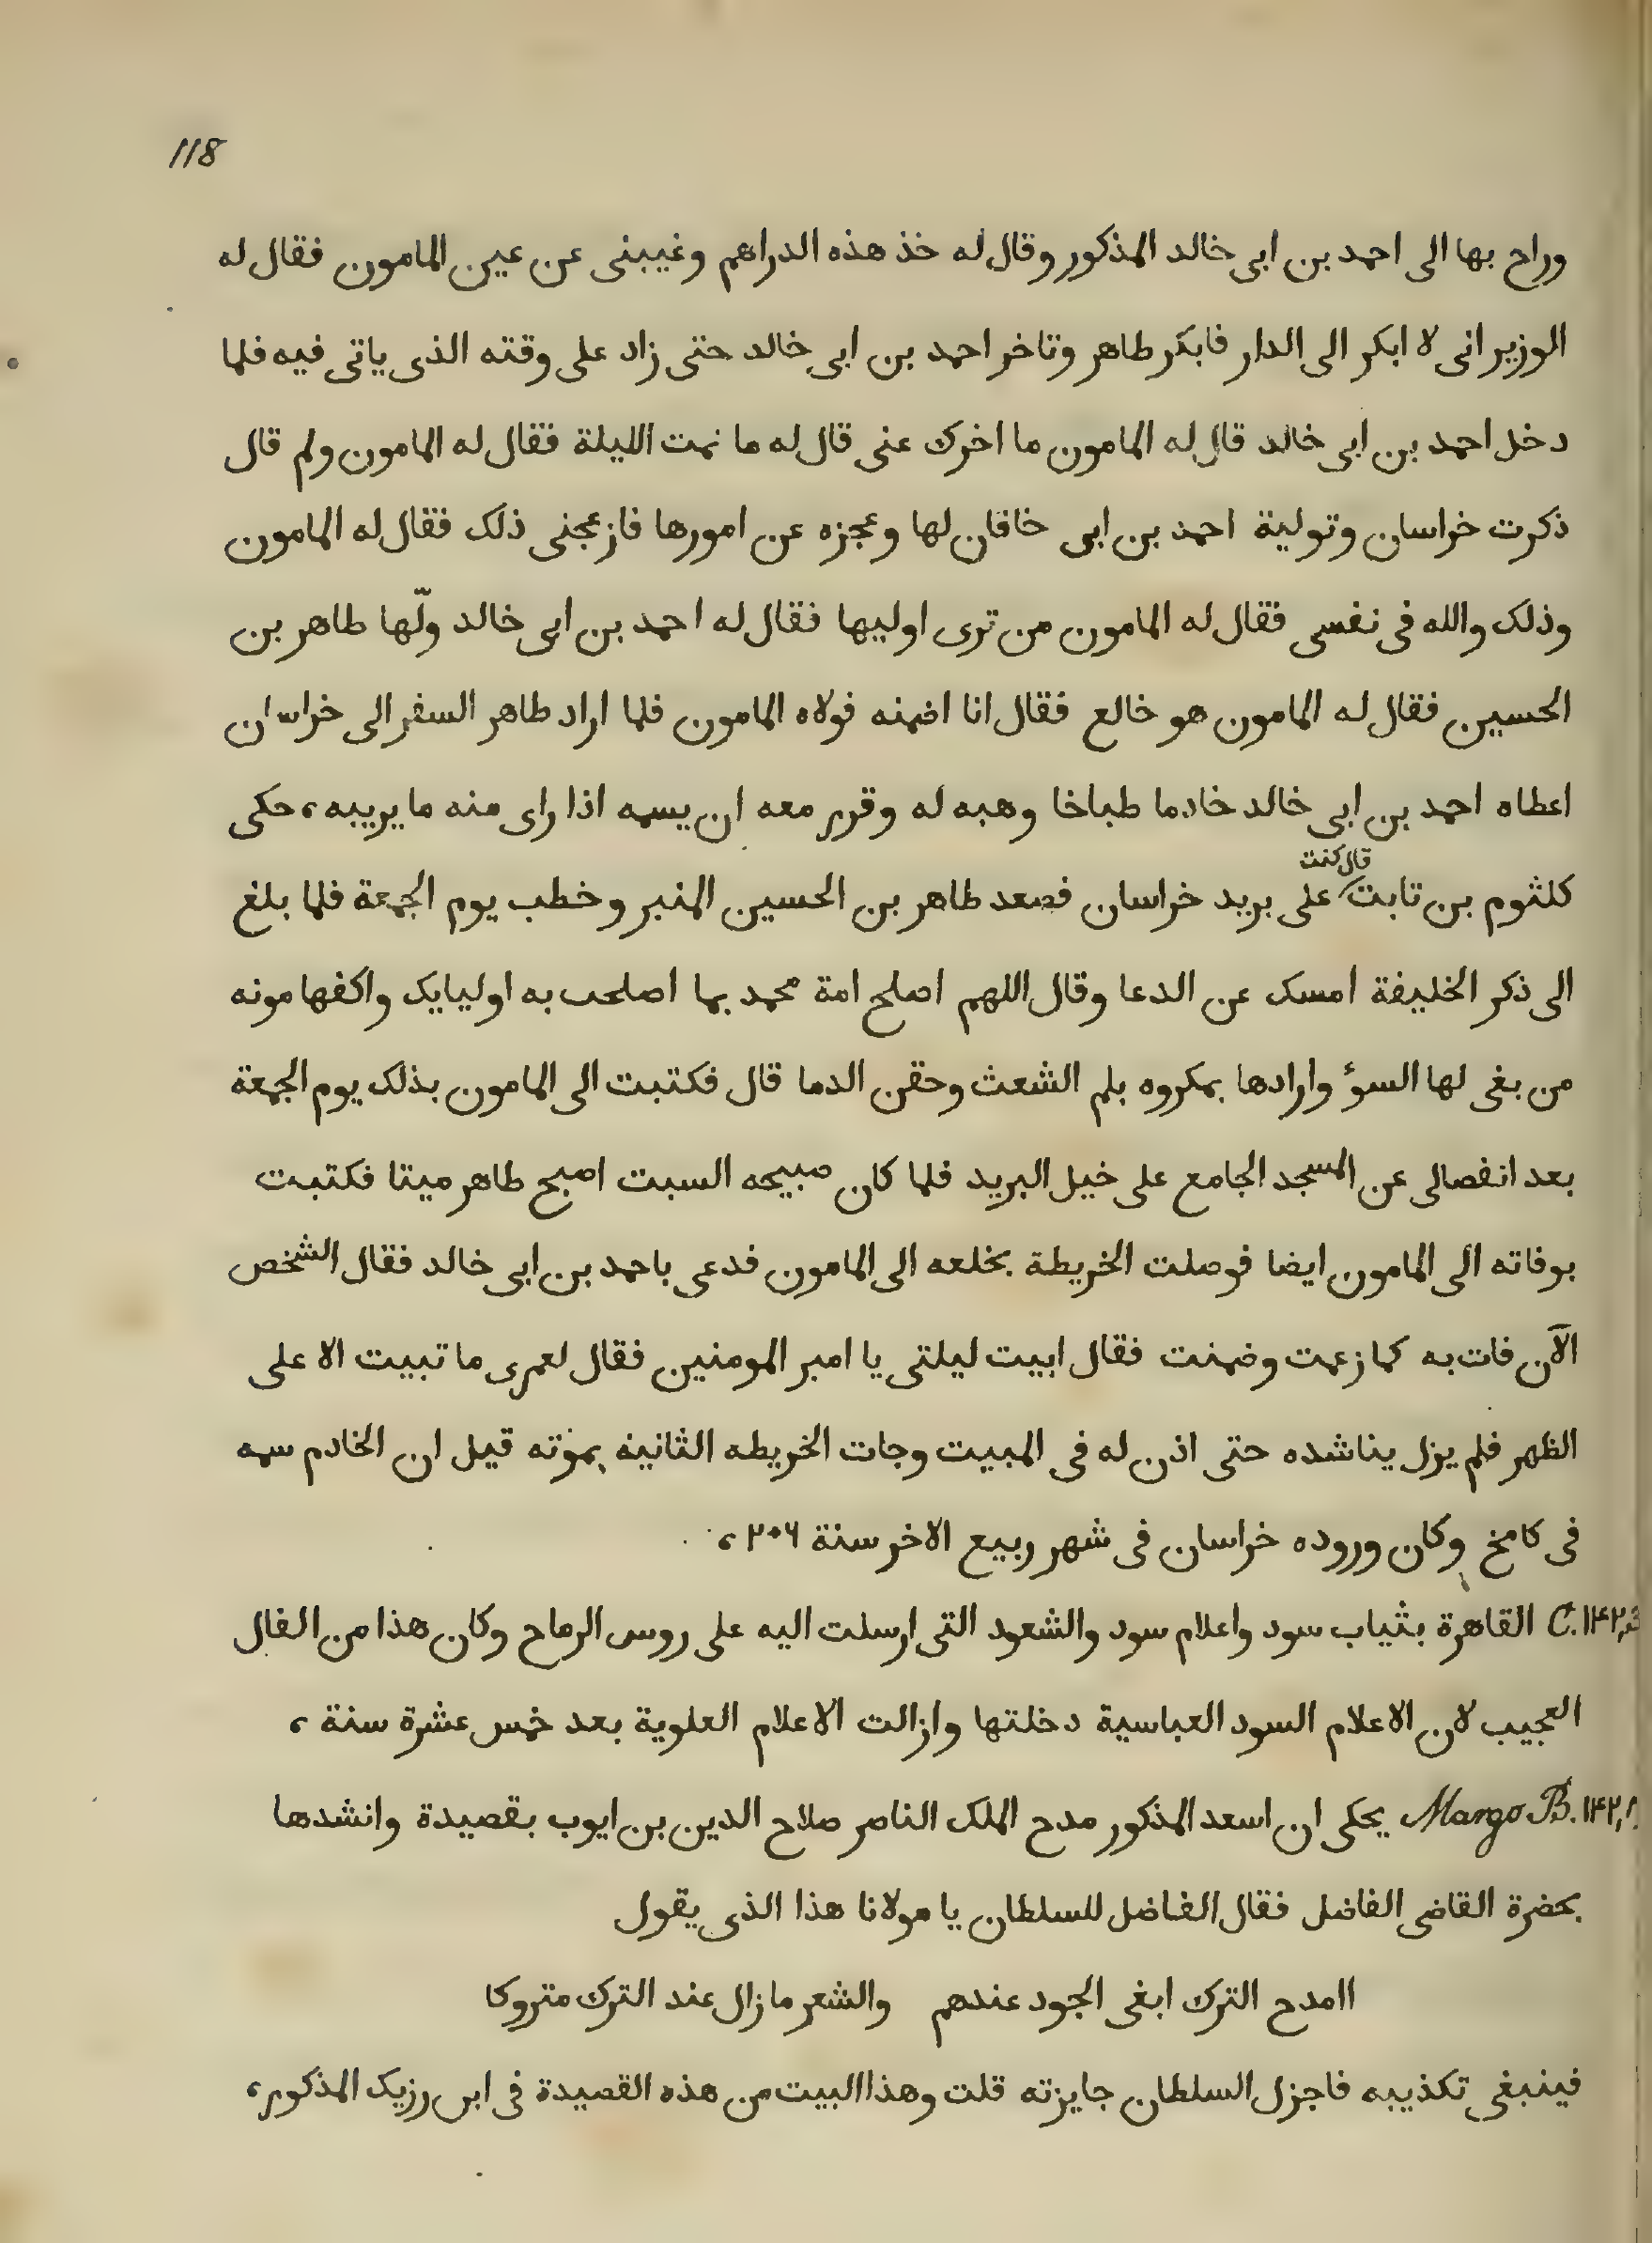 118
وراح بها الى احمد بن ابى خالد المذكور وقال له خذ هذه الدراهم وغيبنى عن عين المامون فقال له
الوزير انى لا ابكر الى الدار فابكر طاهر وتاخر احمد بن ابى خالد حتى زاد على وقته الذى ياتى فيه فلما
دخل احمد بن ابى خالد قال له المامون ما اخرك عنى قال له ما نمت الليلة فقال له المامون ولم قال
ذكرت خراسان وتولية احمد بن ابى خاقان لها وعجزه عن امورها فازعجنى ذلك فقال له المامون
وذلك والله فى نفسى فقال له المامون من ترى اوليها فقال له احمد بن ابى خالد ولّها طاهر بن
الحسين فقال له المامون هو خالع فقال انا اضمنه فولاه المامون فلما اراد طاهر السفر الى خراسان
اعطاه احمد بن ابى خالد خادما طباخا وهبه له وقرر معه ان يسمه اذا راى منه ما يريبه، حكى
كلثوم بن تابت قال كنت على بريد خراسان فصعد طاهر بن الحسين المنبر وخطب يوم الجمعة فلما بلغ
الى ذكر الخليفة امسك عن الدعا وقال اللهم اصلح امة محمد بما اصلحت به اوليايك واكفها مونه
من بغى لها السوٴ وارادها بمكروه بلم الشعث وحقن الدما قال فكتبت الى المامون بذلك يوم الجمعة
بعد انفصالى عن المسجد الجامع على خيل البريد فلما كان صبيحه السبت اصبح طاهر ميتا فكتبت
بوفاته الى المامون ايضا فوصلت الخريطة بخلعه الى المامون فدعى باحمد بن ابى خالد فقال الشخص
الآن فات به كما زعمت وضمنت فقال ابيت ليلتى يا امير المومنين فقال لعمرى ما تبيت الا على
الظهر فلم يزل يناشده حتى اذن له فى المبيت وجات الخريطه الثانيه بموته قيل ان الخادم سمه
فى كامخ وكان وروده خراسان فى شهر ربيع الاخر سنة ٢٠٦،
C. ١٤٢,٣ القاهرة بثياب سود واعلام سود والشعود التى ارسلت اليه على روس الرماح وكان هذا من الفال
العجيب لان الاعلام السود العباسية دخلتها وازالت الاعلام العلوية بعد خمس عشرة سنة،
١٤٢,٨ Margo B. يحكى ان اسعد المذكور مدح الملك الناصر صلاح الدين بن ايوب بقصيدة وانشدها
بحضرة القاضى الفاضل فقال الفاضل للسلطان يا مولانا هذا الذى يقول
اامدح الترك ابغى الجود عندهم والشعر ما زال عند الترك متروكا
فينبغى تكذيبه فاجزل السلطان جايزته قلت وهذا البيت من هذه القصيدة فى ابن رزيك المذكور،